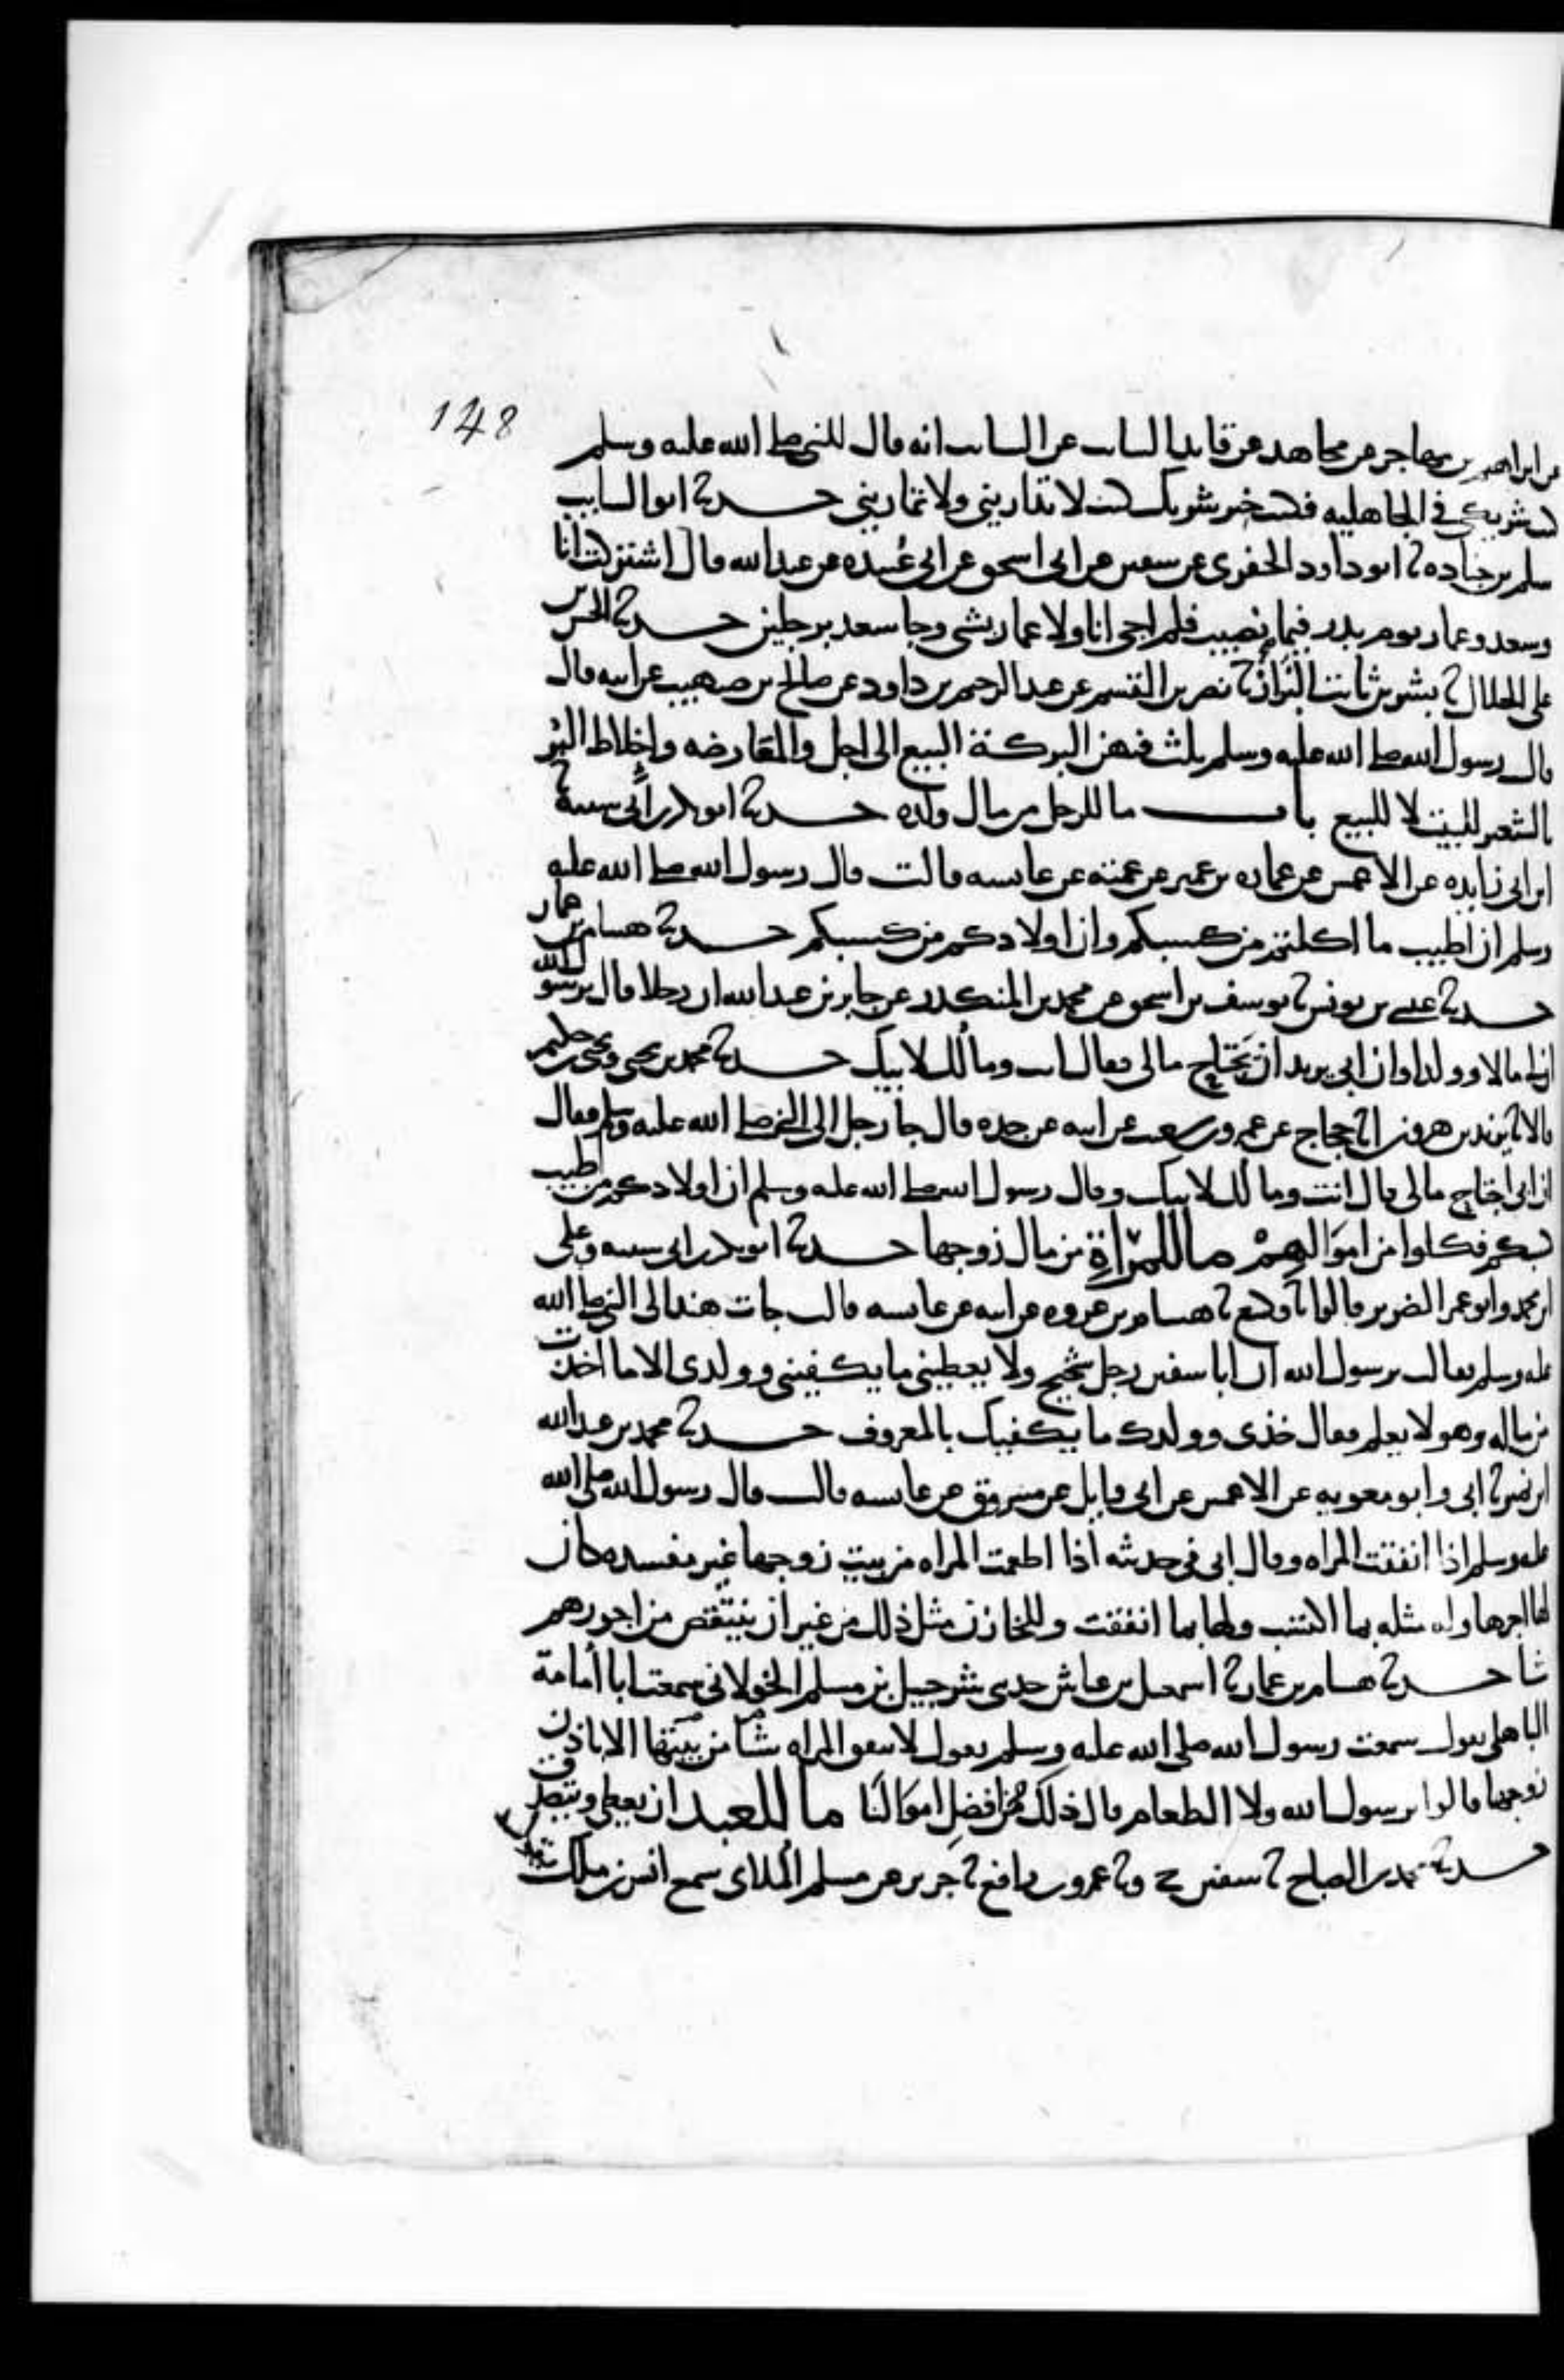 148
عن ابراهيم بن مهاجر عن مجاهد عن قايد السايب عن السايب انه قال للنبي صلى الله عليه وسلم
كنت شريكي في الجاهليه فكنت خير شريك كنت لا تداريني ولا تماريني حدثنا ابو السايب
سلم بن جناده ثنا ابو داود الحفري عن سفين عن ابي اسحق عن ابي عُبيده عن عبد الله قال اشتركت انا
وسعد وعمار يوم بدر فيما نصيب فلم اجي انا ولا عمار بشي وجا سعد برجلين حدثنا الحسن بن
علي الخلال ثنا بشر بن ثابت البَزاز ثنا نصر بن القسم عن عبد الرحمن بن داود عن صالح بن صهيب عن ابيه قال
قال رسول الله صلى الله عليه وسلم ثلث فيهن البركة البيع الى اجل والمقارضه واخلاط البُر
بالشعير للبيت لا للبيع باب ما للرجل من مال ولده حدثنا ابو بكر بن أبي شيبة ثنا
ابن ابي زايده عن الاعمش عن عماره بن عمير عن عمته عن عايشه قالت قال رسول الله صلى الله عليه
وسلم ان اطيب ما اكلتم من كسبكم وان اولادكم من كسبكم حدثنا هشام بن عمار
حدثنا عيسى بن يونس ثنا يوسف بن اسحق عن محمد بن المنكدر عن جابر بن عبد الله ان رجلا قال يرسول الله
ان لي مالا وولدا وان ابي يريد ان يَجتاح مالي فقال انت ومالُك لابيك حدثنا محمد بن يحيى ويحيى بن حكيم
قالا ثنا يزيد بن هرون انا حجاج عن عمرو بن شعيب عن ابيه عن جده قال جا رجل الى النبي صلى الله عليه وسلم فقال
ان ابي اجتاح مالي قال انت ومالُك لابيك وقال رسول الله صلى الله عليه وسلم ان اولادكم من اطيب
كسبكم فكلوا من اموَالهِمْ ما للمَرْاةِ من مال زوجها حدثنا ابو بكر بن ابي شيبه وعلي
ابن محمد وابو عمر الضرير قالوا ثنا وكيع ثنا هشام بن عروه عن ابيه عن عايشه قالت جات هند الى النبي صلى الله
عليه وسلم فقالت يرسول الله ان ابا سفين رجل شحيح ولا يعطيني ما يكفيني وولدي الا ما اخذت
من ماله وهو لا يعلم فقال خذي وولدك ما يكفيك بالمعروف حدثنا محمد بن عبد الله
ابن نمير ثنا ابي وابو معويه عن الاعمش عن ابي وايل عن مسروق عن عايشه قالت قال رسول الله صلى الله
عليه وسلم اذا انفقت المراه وقال ابي في حديثه اذا اطعمت المراه من بيت زوجها غير مفسده كان
لها اجرها وله مثله بما اكتسب ولها بما انفقت وللخازن مثل ذلك من غير ان ينتقص من اجورهم
شيا حدثنا هشام بن عمار ثنا اسمعيل بن عياش حدثني شرحبيل بن مسلم الخولاني سمعت ابا أمامة
الباهلي يقول سمعت رسول الله صلى الله عليه وسلم يقول لا تنفق المراه شيا من بيتها الا باذن
زوجها قالوا يرسول الله ولا الطعام قال ذلك مِن افضلِ اموَالنَا ما للعبد ان يعطي ويتصدق
حدثنا محمد بن الصباح ثنا سفين ح وثنا عمرو بن رافع ثنا جرير عن مسلم المُلاي سمع انس بن ملك